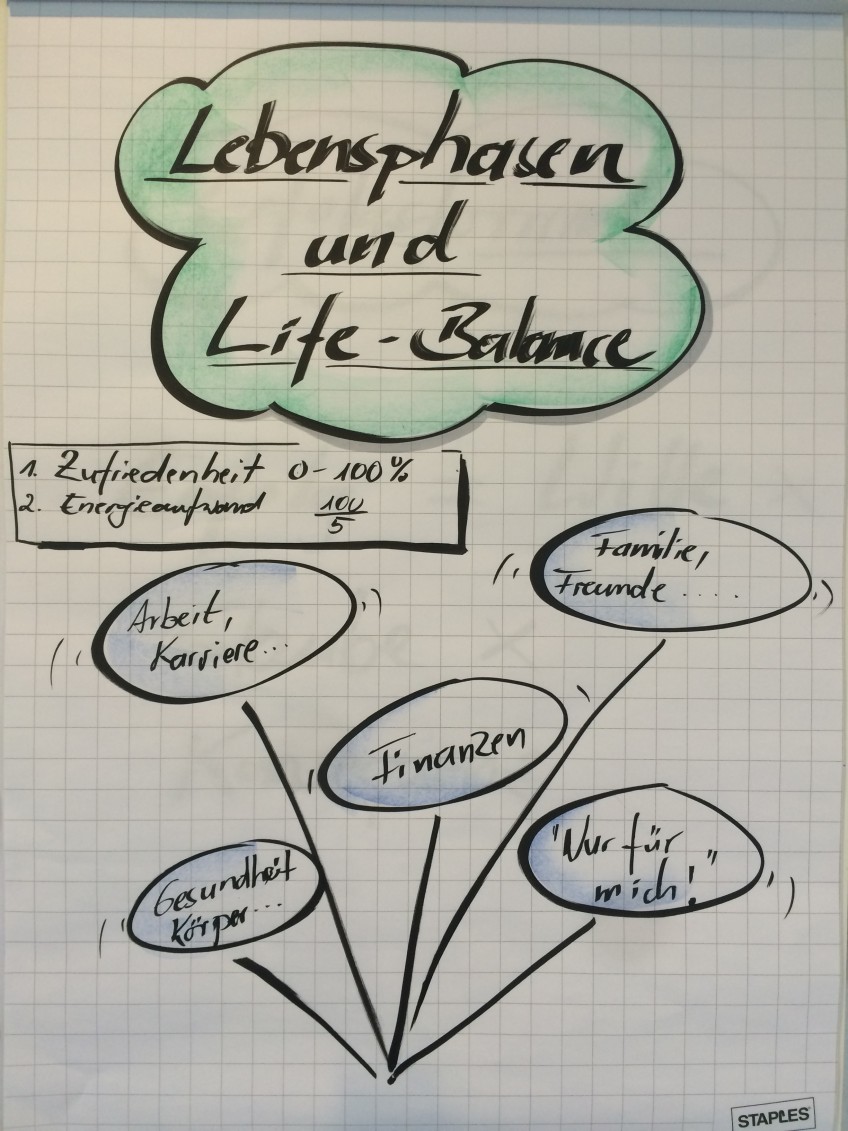 Lebensphasen
und
Life-Balance
1. Zufriedenheit 0-100%
2. Energieaufwand 100/5
Arbeit,
Karriere...
Familie,
Freunde .....
Finanzen
Gesundheit
Körper...
"Nur für
mich!"
STAPLES